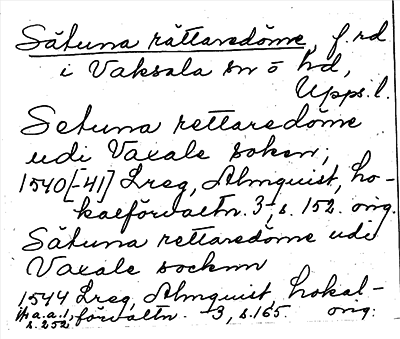 Såtuna rättaredöme, f.rd
i Vaksala sn o hd,
Upps.l.
Setuna rettaredöme
udi Vaxale soken,
1540[-41] Lreg, Almquist, Lo-
kalförvaltn. 3, s. 152. orig.
Såtuna rettaredöme udi
Vaxale socknn
1544 Lreg, Almquist, Lokal-
förvaltn. 3, s. 165. orig.
a.a.1,
s. 252